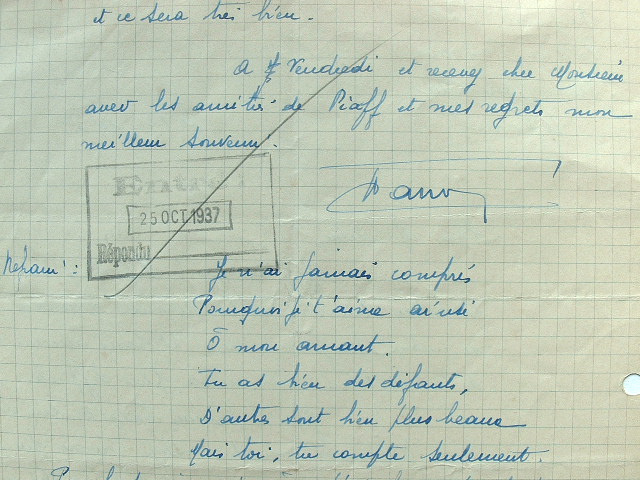 et ce sera très bien.
A Vendredi et recevez cher Monsieur
avec les amitiés de Piaff et mes regrets mon
meilleur souvenir.
Entré
25 OCT 1937
Répondu
Refrain :
Je n'ai jamais compris
Pourquoi je t'aime ainsi
Ô mon amant.
Tu as bien des défauts,
D'autres sont bien plus beaux
Mais toi, tu compte seulement.